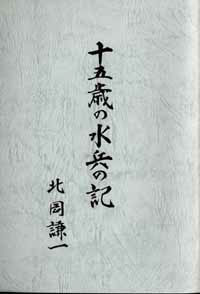 十五歳の水兵の記
北岡謙一